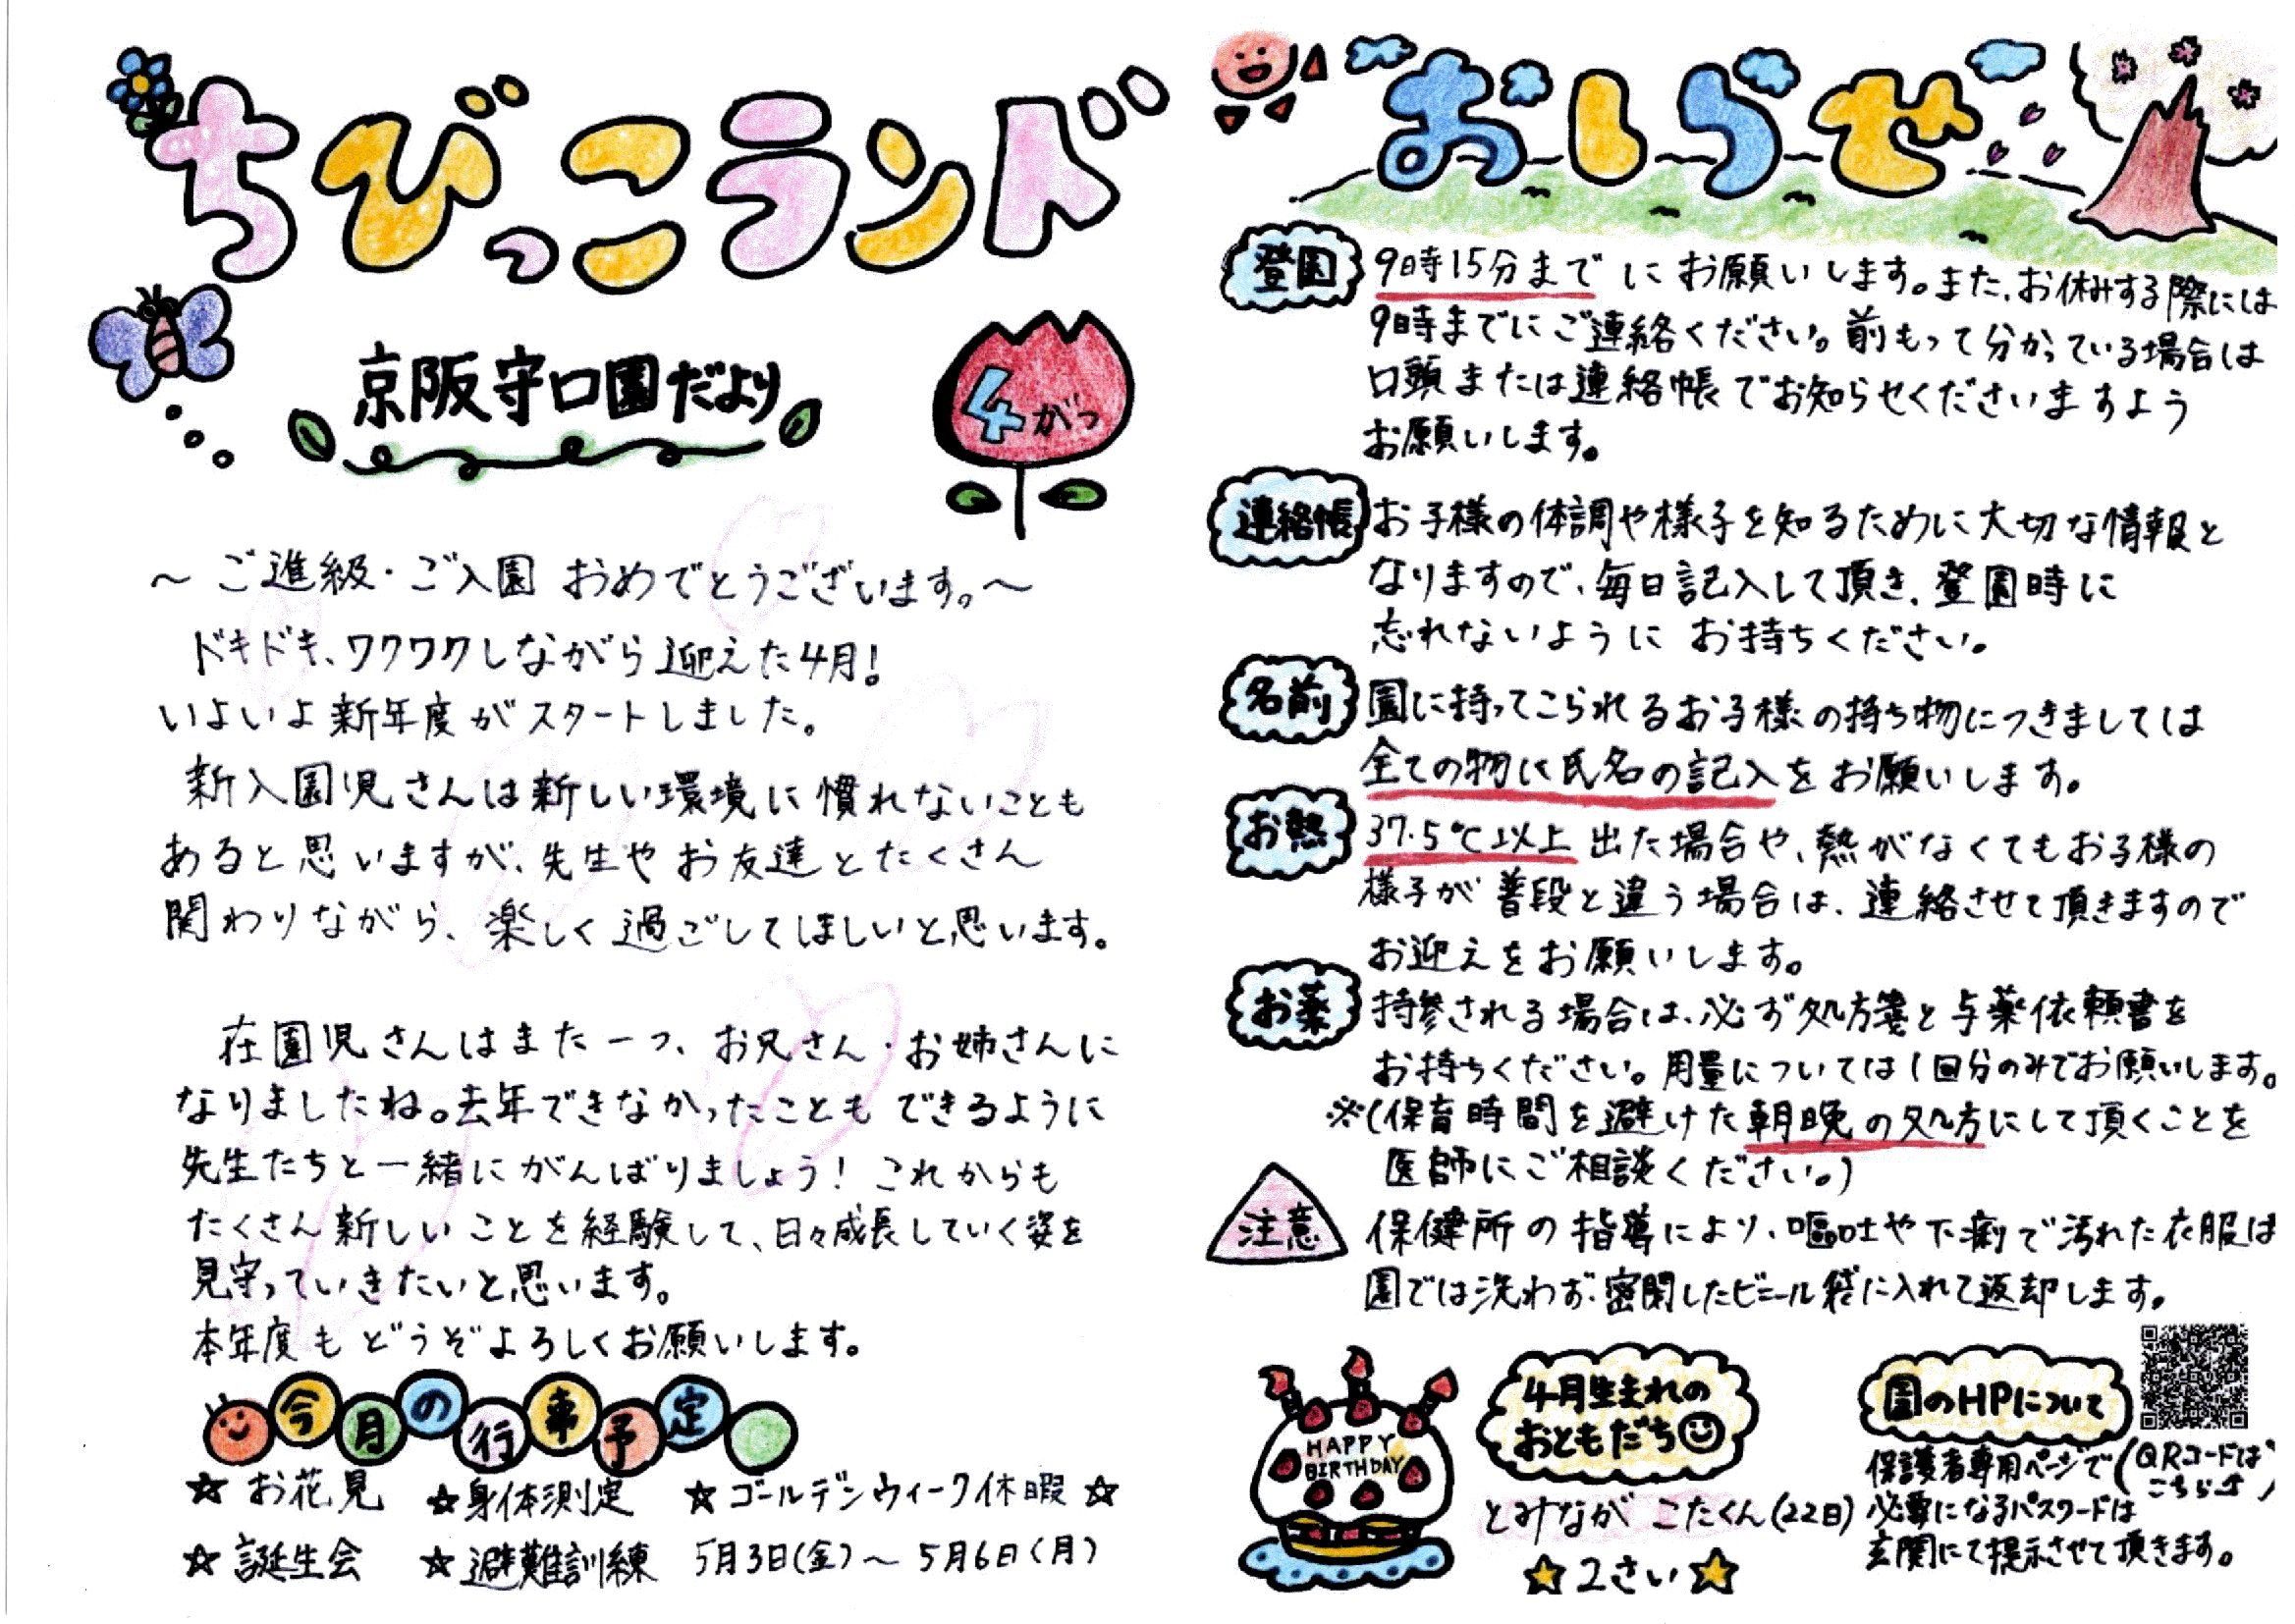 ちびっこランド
京阪守口園だより
4がつ
～ご進級・ご入園 おめでとうございます。～
ドキドキ、ワクワクしながら迎えた4月!
いよいよ新年度がスタートしました。
新入園児さんは新しい環境に慣れないことも
あると思いますが、先生やお友達とたくさん
関わりながら、楽しく過ごしてほしいと思います。
在園児さんはまた一つ、お兄さん・お姉さんに
なりましたね。去年できなかったことも できるように
先生たちと一緒にがんばりましょう! これからも
たくさん新しいことを経験して、日々成長していく姿を
見守っていきたいと思います。
本年度も どうぞよろしくお願いします。
今月の行事予定
☆お花見 ☆身体測定 ☆ゴールデンウィーク休暇☆
☆誕生会 ☆避難訓練 5月3日(金)～5月6日(月)
おしらせ
登園 9時15分までにお願いします。また、お休みする際には
9時までにご連絡ください。前もって分かっている場合は
口頭または連絡帳でお知らせくださいますよう
お願いします。
連絡帳 お子様の体調や様子を知るために大切な情報と
なりますので、毎日記入して頂き、登園時に
忘れないように お持ちください。
名前 園に持ってこられるお子様の持ち物につきましては
全ての物に氏名の記入をお願いします。
お熱 37.5℃以上 出た場合や、熱がなくてもお子様の
様子が普段と違う場合は、連絡させて頂きますので
お迎えをお願いします。
お薬 持参される場合は、必ず処方箋と与薬依頼書を
お持ちください。用量については1回分のみでお願いします。
※(保育時間を避けた朝晩の処方にして頂くことを
医師にご相談ください。)
注意 保健所の指導により、嘔吐や下痢で汚れた衣服は
園では洗わず、密閉したビニール袋に入れて返却します。
HAPPY
BIRTHDAY
4月生まれの
おともだち
とみなが こたくん(22日)
☆2さい☆
園のHPについて
保護者専用ページで(QRコードは
こちら↑)
必要になるパスワードは
玄関にて提示させて頂きます。